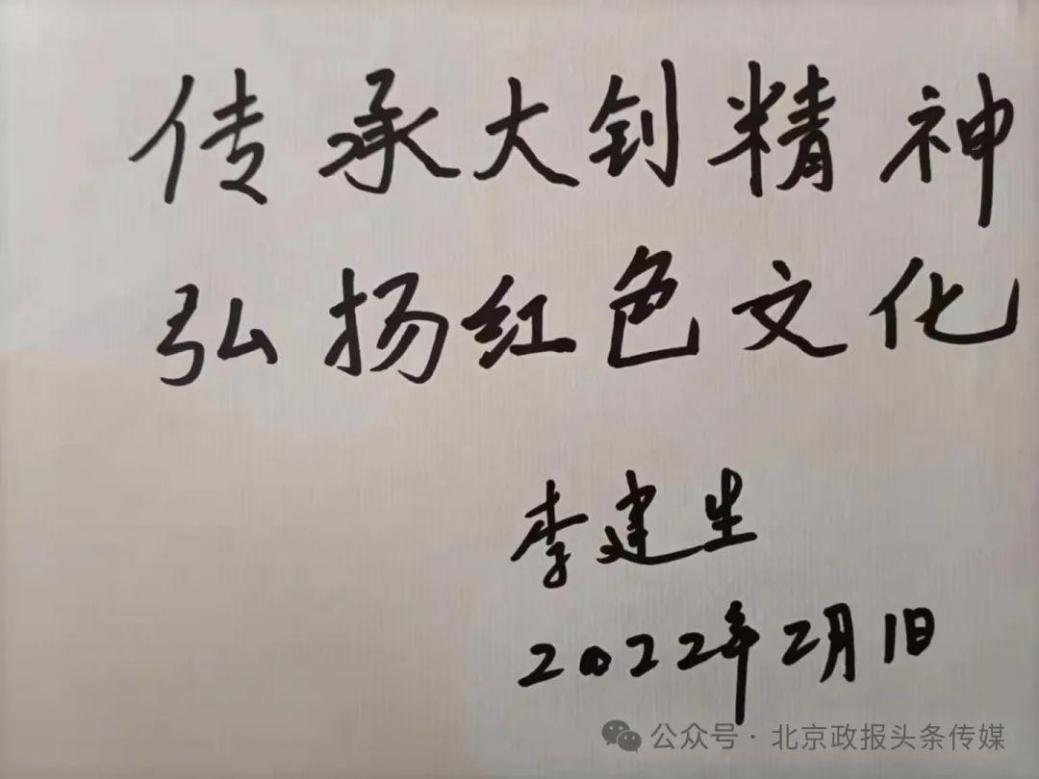 传承大钊精神
弘扬红色文化
李建生
2022年2月1日
公众号·北京政报头条传媒